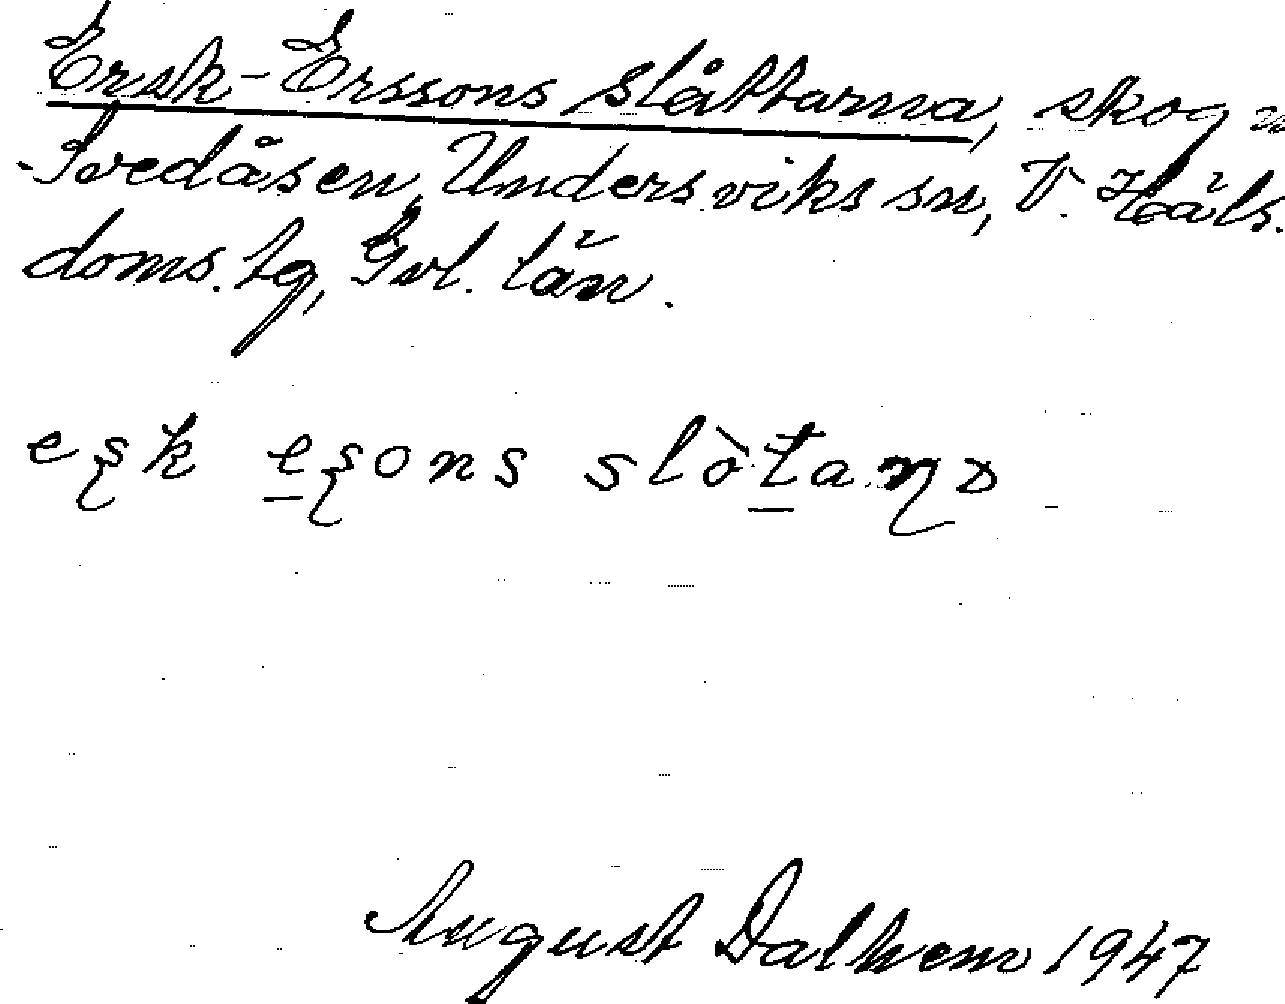 Ersk-Erssons slåttarna, skog n
Svedåsen, Undersviks sn, V. Häls.
doms. tg, Gvl. län.
eʂk eʂons slòtaɳɒ
August Dalhem 1947